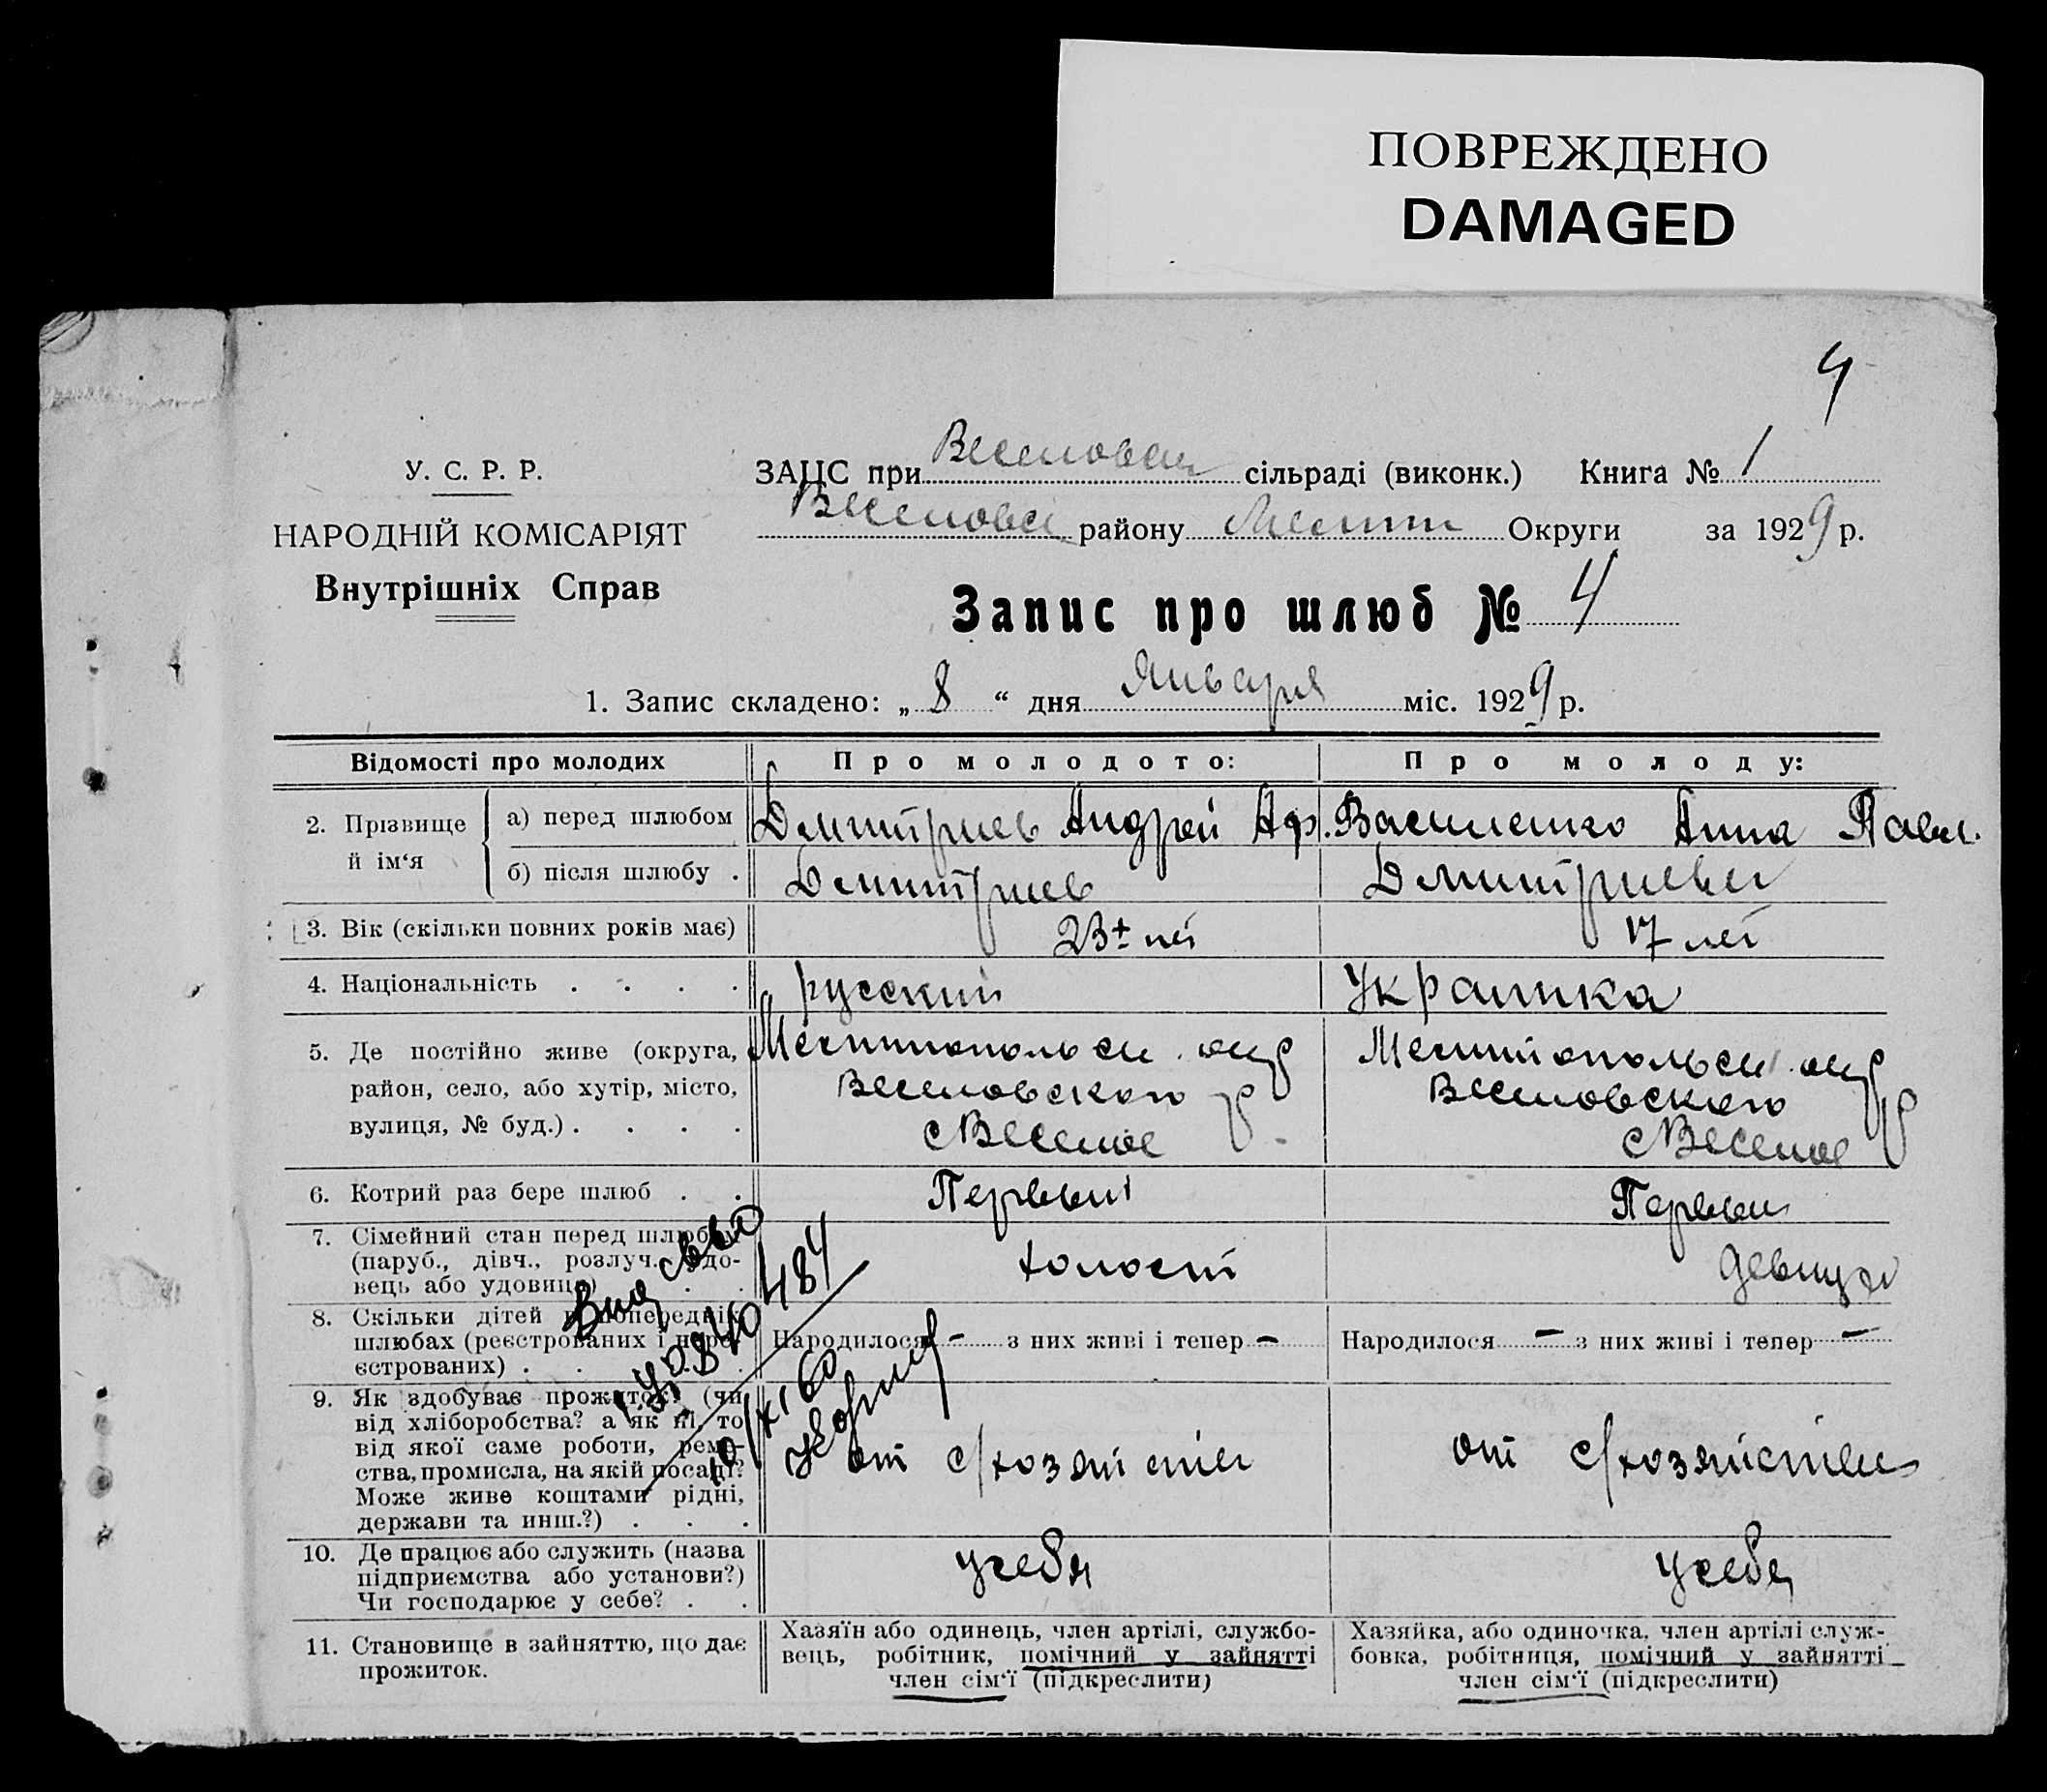 ПОВРЕЖДЕНО
DAMAGED
4
У. С. Р. Р.
НАРОДНІЙ КОМІСАРІЯТ
Внутрішніх Справ
ЗАЦС при Веселовск сільраді (виконк.) Книга № 1
Веселовск району Мелит Округи за 1929 р.
Запис про шлюб № 4
1. Запис складено: „ 8 “ дня Января міс. 1929 р.
Відомості про молодих
Про молодого:
Про молоду:
2. Прізвище й ім‘я
а) перед шлюбом
Дмитриев Андрей Аф.
Василенко Анна Павл.
б) після шлюбу .
Дмитриев
Дмитриева
3. Вік (скільки повних років має)
23 лет
17 лет
4. Національність . . . .
русский
Украинка
5. Де постійно живе (округа,
район, село, або хутір, місто,
вулиця, № буд.) . . . .
Мелитопольск. окр
Веселовского р
с Веселое
Мелитопольск. окр
Веселовского р
с Веселое
6. Котрий раз бере шлюб . .
Первый
Первый
7. Сімейний стан перед шлюбом
(паруб., дівч., розлуч., вдо-
вець або удовиця) . .
холост
девица
8. Скільки дітей в попередніх
шлюбах (реєстрованих і нере-
єстрованих) . . . .
Народилося – з них живі і тепер –
Народилося – з них живі і тепер –
9. Як здобуває прожиток? (чи
від хліборобства? а як ні, то
від якої саме роботи, реме-
ства, промисла, на якій посаді?
Може живе коштами рідні,
держави та инш.?) . . .
от с/хозяйства
от с/хозяйства
10. Де працює або служить (назва
підприємства або установи?)
Чи господарює у себе? . .
у себя
у себя
11. Становище в зайняттю, що дає
прожиток.
Хазяїн або одинець, член артілі, службо-
вець, робітник, помічний у зайнятті
член сім‘ї (підкреслити)
Хазяйка, або одиночка, член артілі служ-
бовка, робітниця, помічний у зайнятті
член сім‘ї (підкреслити)
484
10/XI 60